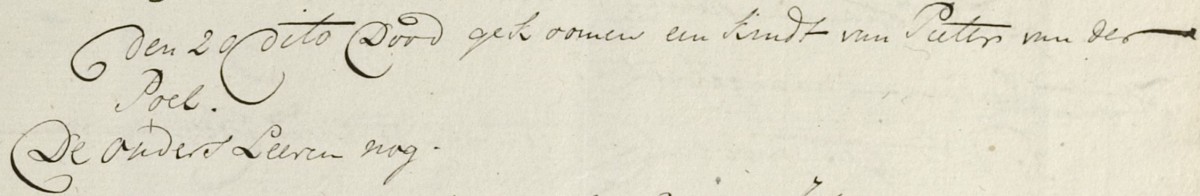 Den 29 dito Dood gekoomen een kindt van Pieter van der
Poel.
De ouders Leeven nog.